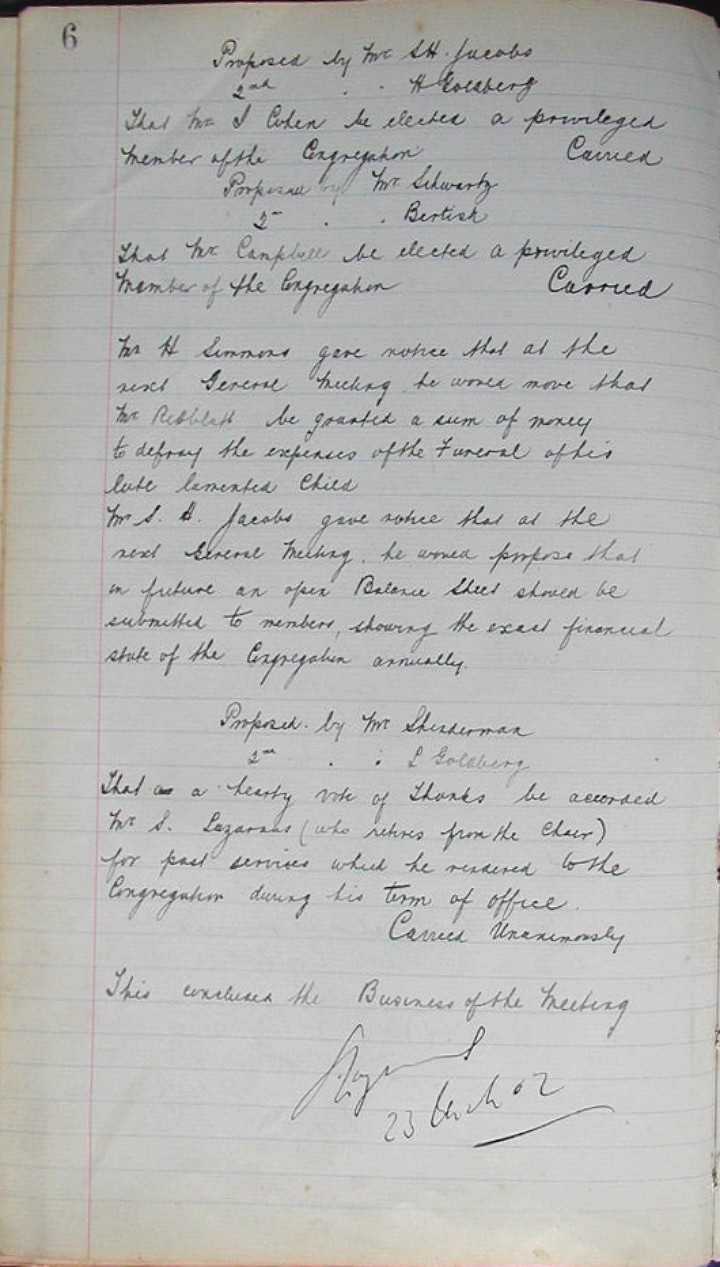 6
Proposed by Mr SH. Jacobs
2nd . . H Goldberg
That Mr I Cohen be elected a privileged
Member of the Congregation Carried
Proposed by Mr Schwartz
2nd . . Bertish
That Mr Campbell be elected a privileged
Member of the Congregation Carried
Mr H Simmons gave notice that at the
next General Meeting he would move that
Mr be granted a sum of money
to defray the expenses of the Funeral of his
late lamented Child
Mr S. H. Jacobs gave notice that at the
next General Meeting, he would propose that
in future an open Balance Sheet should be
submitted to members, showing the exact financial
state of the Congregation annually.
Proposed by Mr
2nd . . L Goldberg
That as a hearty vote of Thanks be accorded
Mr S. Lazarus (who retires from the Chair)
for past services which he rendered to the
Congregation during his term of office.
Carried Unanimously
This concluded the Business of the Meeting
23 02